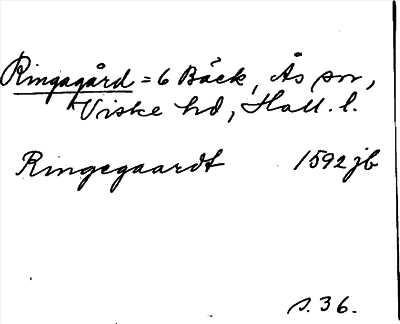 Ringagård = 6 Bäck, Ås sn,
Viske hd, Hall. l.
Ringegaardt 1592 jb
s. 36.